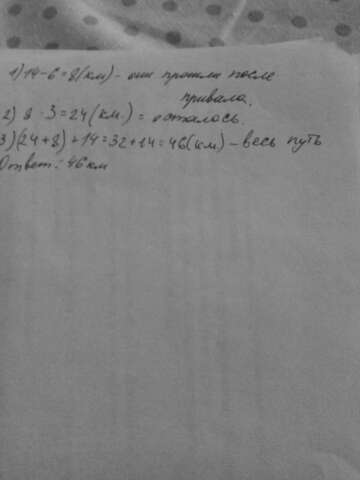 1) 14-6=8(км)- они прошли после
привала.
2) 8 · 3=24(км.) = осталось.
3)(24+8)+14=32+14=46(км.)-весь путь
Ответ: 46км